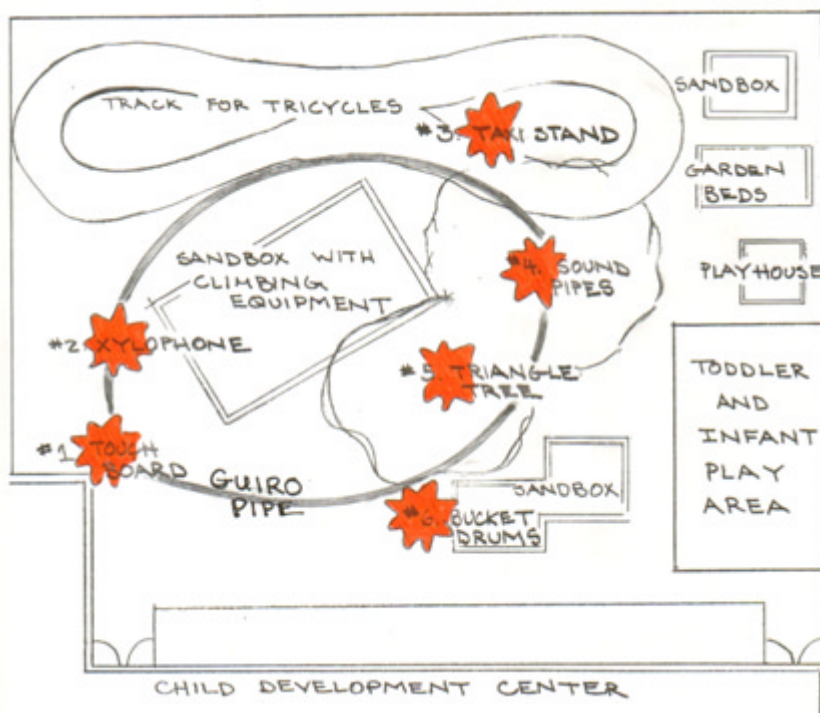 TRACK FOR TRICYCLES
#3. TAXI STAND
SANDBOX
GARDEN
BEDS
SANDBOX WITH
CLIMBING
EQUIPMENT
#4. SOUND
PIPES
PLAYHOUSE
#2. XYLOPHONE
#5. TRIANGLE
TREE
TODDLER
AND
INFANT
PLAY
AREA
#1. TOUCH
BOARD
GUIRO
PIPE
SANDBOX
#6. BUCKET
DRUMS
CHILD DEVELOPMENT CENTER